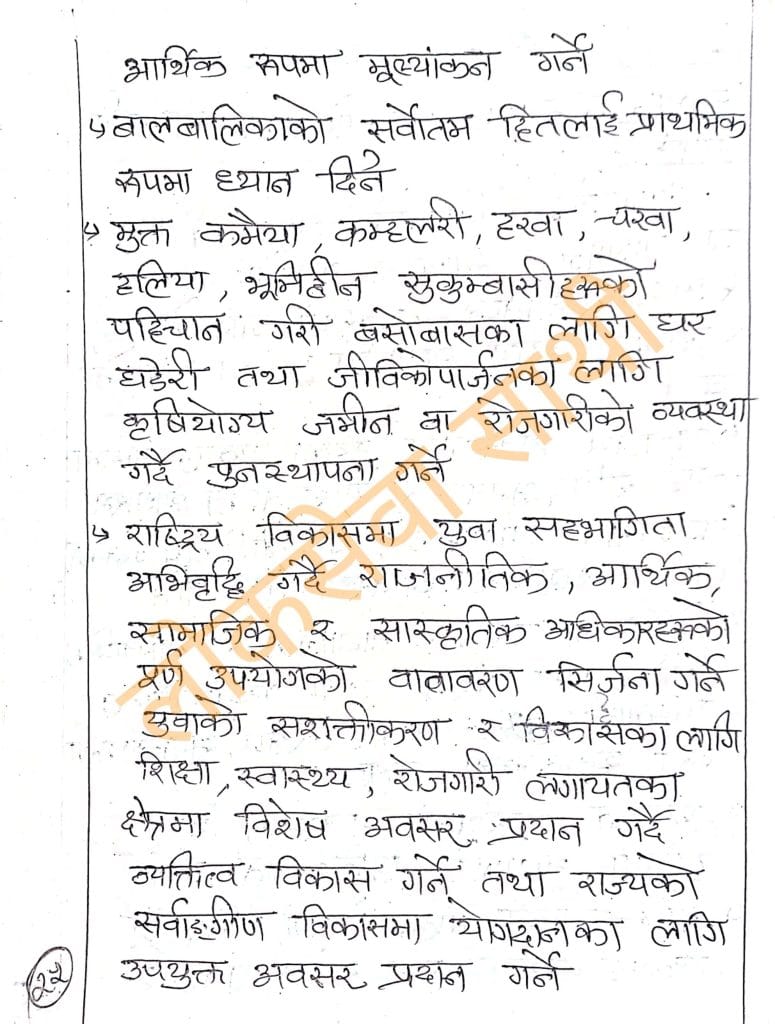 आर्थिक रूपमा मूल्यांकन गर्ने
↳ बालबालिकाको सर्वोतम हितलाई प्राथमिक
रूपमा ध्यान दिने
↳ मुक्त कमैया, कम्हलरी, हरवा, चरवा,
हलिया, भूमिहीन सुकुम्बासीहरूको
पहिचान गरी बसोबासका लागि घर
घडेरी तथा जीविकोपार्जनका लागि
कृषियोग्य जमीन वा रोजगारीको व्यवस्था
गर्दै पुनस्थापना गर्ने
↳ राष्ट्रिय विकासमा युवा सहभागिता
अभिवृद्धि गर्दै राजनीतिक, आर्थिक,
सामाजिक र सास्कृतिक अधिकारहरूको
पूर्ण उपयोगको वातावरण सिर्जना गर्ने
युवाको सशक्तीकरण र विकासका लागि
शिक्षा, स्वास्थ्य, रोजगारी लगायतका
क्षेत्रमा विशेष अवसर प्रदान गर्दै
व्यक्तित्व विकास गर्ने तथा राज्यको
सर्वाङ्गीण विकासमा योगदानका लागि
उपयुक्त अवसर प्रदान गर्ने
२२
लोकसेवा साथी